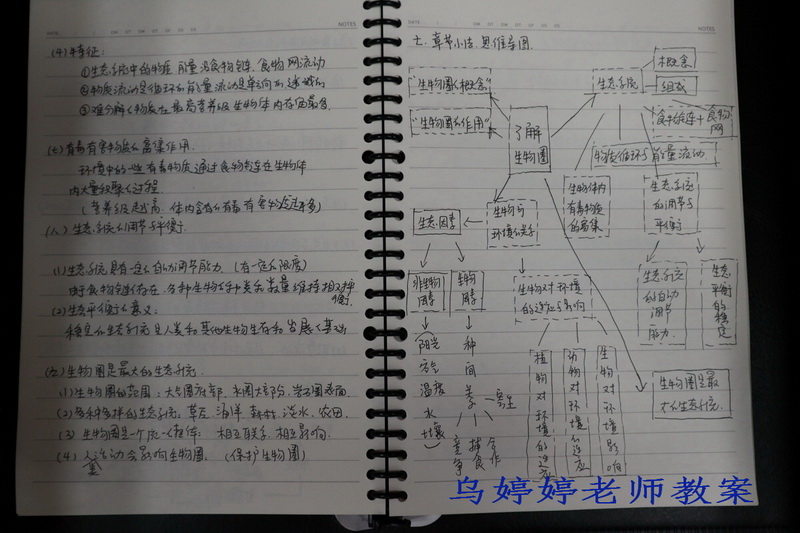 NOTES
(4)特征:
①生态系统中的物质 能量沿食物链、食物网流动
②物质流动是循环的 能量流动是单向的 递减的
(七)有毒有害物质的富集作用.
环境中的一些有毒物质通过食物链在生物体
内大量积聚的过程
(营养级越高、体内含有的有毒有害物质越多)
(八) 生态系统的调节与平衡.
(1)生态系统具有一定的自动调节能力 (有一定的限度)
由于食物链的存在,各种生物的种类和数量维持相对平衡.
(2)生态平衡的意义:
稳定的生态系统是人类和其他生物生存和发展的基础
(九)生物圈是最大的生态系统.
(1)生物圈的范围:大气圈底部、水圈大部分、岩石圈表面.
(2)多种多样的生态系统 草原 海洋 森林 淡水、农田.
(3) 生物圈是一个统一的整体: 相互联系、相互影响.
(4) 人类活动会影响生物圈. (保护生物圈)
NOTES
七、章节小结、思维导图.
"生物圈的概念"
"生物圈的作用"
了解
生物圈
生态系统
概念
组成
食物链+食物
网
物质循环与能量流动
生物体内
有毒物质
的富集
生态系统
的调节与
平衡
生态系统
的自动
调节
能力.
生态
平衡
的稳定
生物圈是最
大的生态系统.
生物与
环境的关系
生态因素
非生物
因素
生物
因素
阳光
空气
温度
水
土壤
种
间
关
系
寄生
竞争
捕食
合作
生物对环境
的适应与影响
植物对环境的适应
动物对环境的适应
生物对环境影响
乌婷婷老师教案